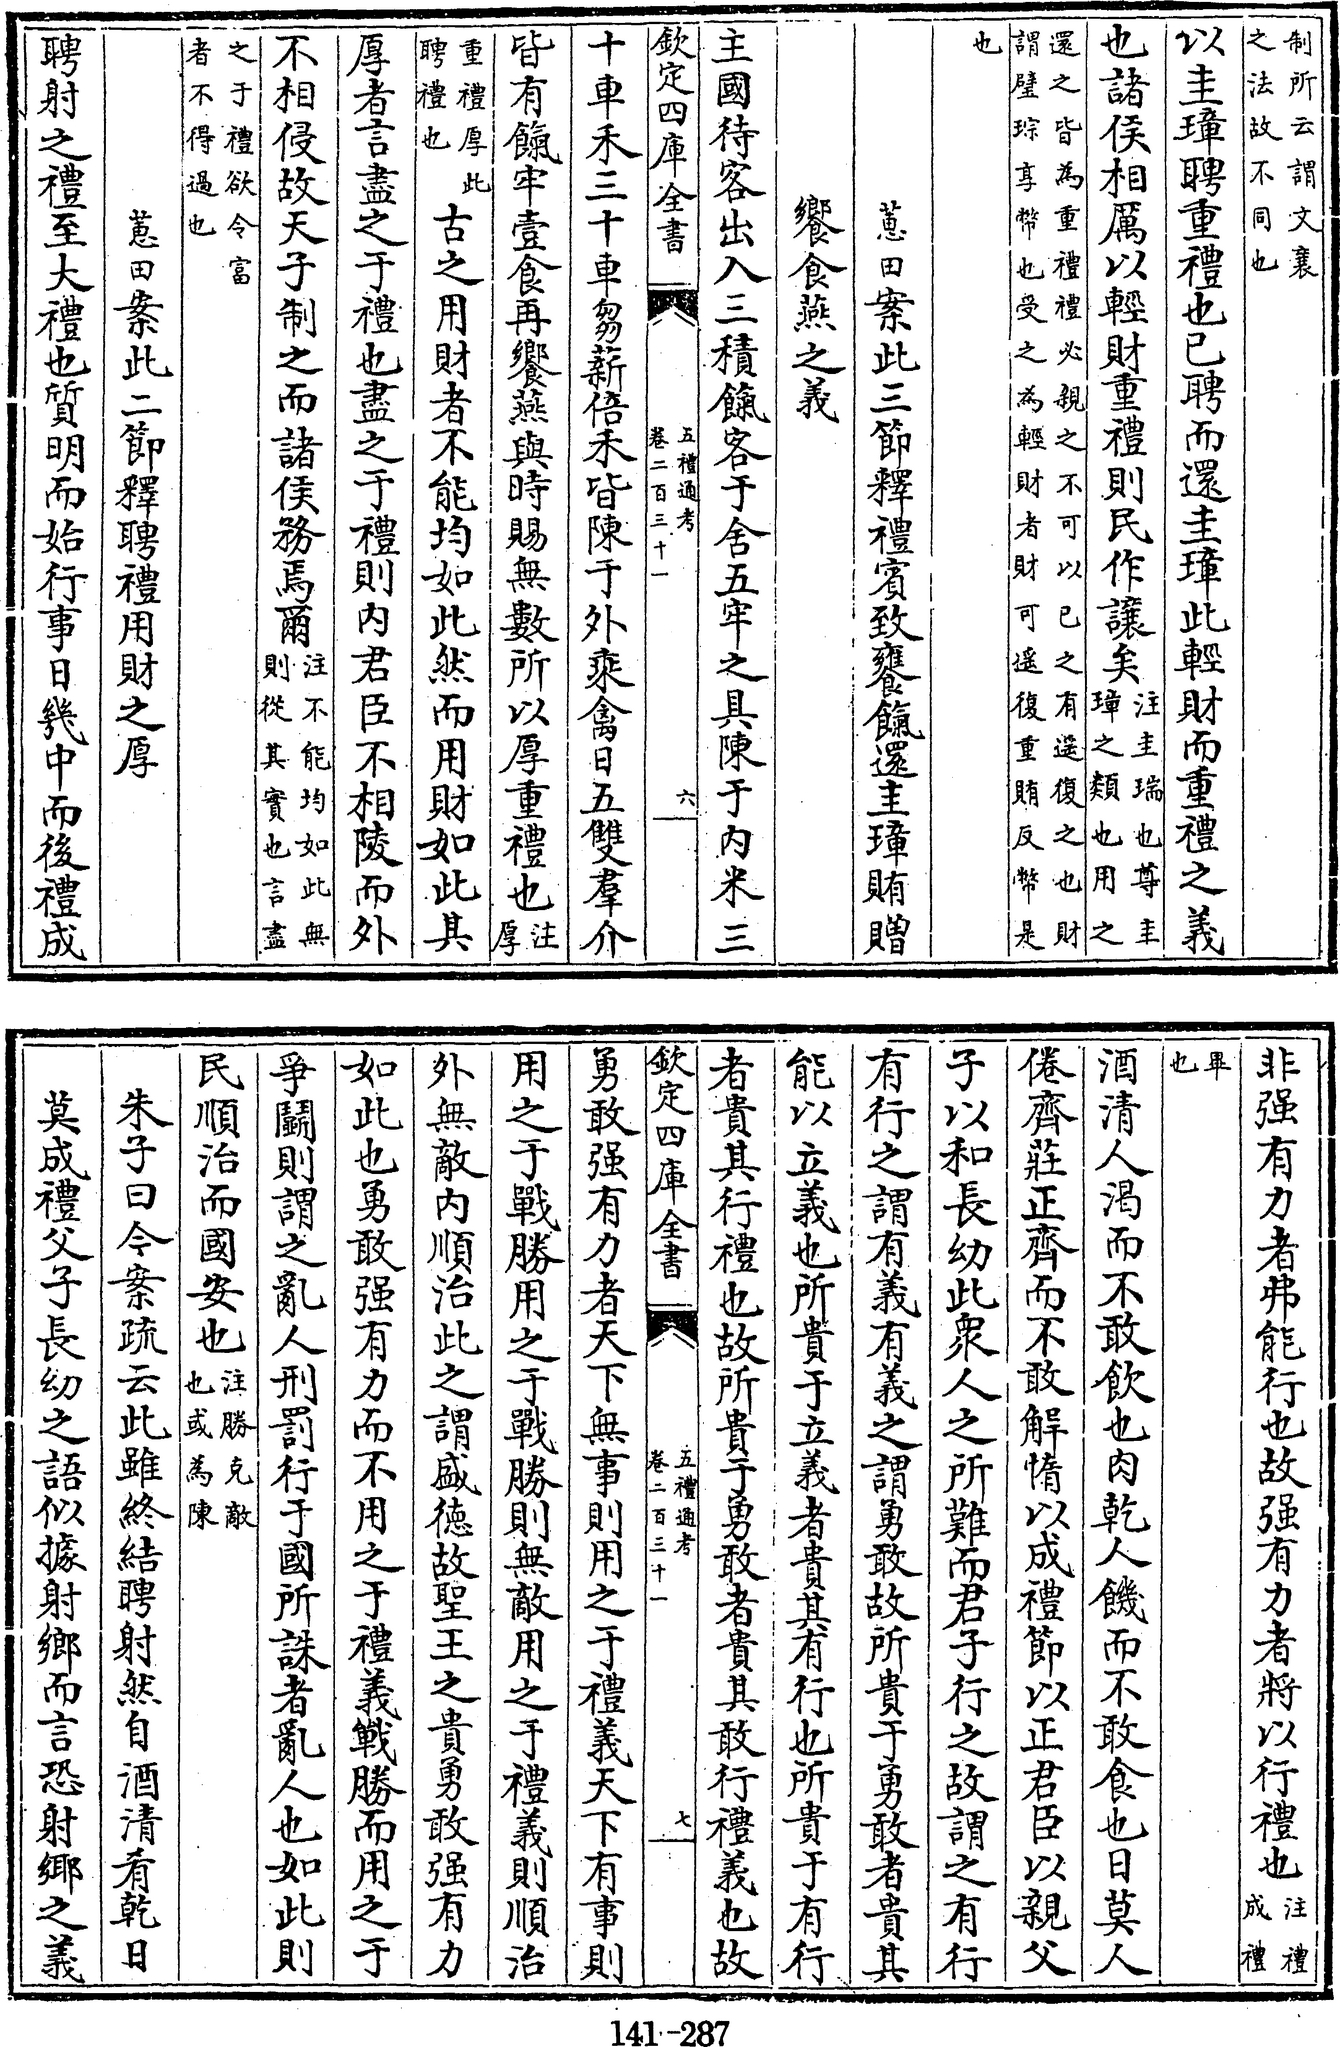 制所云謂文襄
之法故不同也
以圭璋聘重禮也已聘而還圭璋此輕財而重禮之義
也諸侯相厲以輕財重禮則民作讓矣注圭瑞也尊圭
璋之類也用之
還之皆為重禮禮必親之不可以已之有遥復之也財
謂璧琮享幣也受之為輕財者財可遥復重賄反幣是
也
蕙田案此三節釋禮賓致饔餼還圭璋賄贈
饗食燕之義
主國待客出入三積餼客于舍五牢之具陳于内米三
欽定四庫全書
五禮通考
卷二百三十一
六
十車禾三十車芻薪倍禾皆陳于外乘禽日五雙羣介
皆有餼牢壹食再饗燕與時賜無數所以厚重禮也注
厚
重禮厚此
聘禮也
古之用財者不能均如此然而用財如此其
厚者言盡之于禮也盡之于禮則内君臣不相陵而外
不相侵故天子制之而諸侯務焉爾注不能均如此無
則從其實也言盡
之于禮欲令富
者不得過也
蕙田案此二節釋聘禮用財之厚
聘射之禮至大禮也質明而始行事日幾中而後禮成
非强有力者弗能行也故强有力者將以行禮也注禮
成禮
畢
也
酒清人渴而不敢飲也肉乾人饑而不敢食也日莫人
倦齊莊正齊而不敢解惰以成禮節以正君臣以親父
子以和長幼此衆人之所難而君子行之故謂之有行
有行之謂有義有義之謂勇敢故所貴于勇敢者貴其
能以立義也所貴于立義者貴其有行也所貴于有行
者貴其行禮也故所貴于勇敢者貴其敢行禮義也故
欽定四庫全書
五禮通考
卷二百三十一
七
勇敢强有力者天下無事則用之于禮義天下有事則
用之于戰勝用之于戰勝則無敵用之于禮義則順治
外無敵内順治此之謂盛徳故聖王之貴勇敢强有力
如此也勇敢强有力而不用之于禮義戰勝而用之于
爭鬭則謂之亂人刑罰行于國所誅者亂人也如此則
民順治而國安也注勝克敵
也或為陳
朱子曰今案疏云此雖終結聘射然自酒清肴乾日
莫成禮父子長幼之語似據射鄉而言恐射鄉之義
141-287